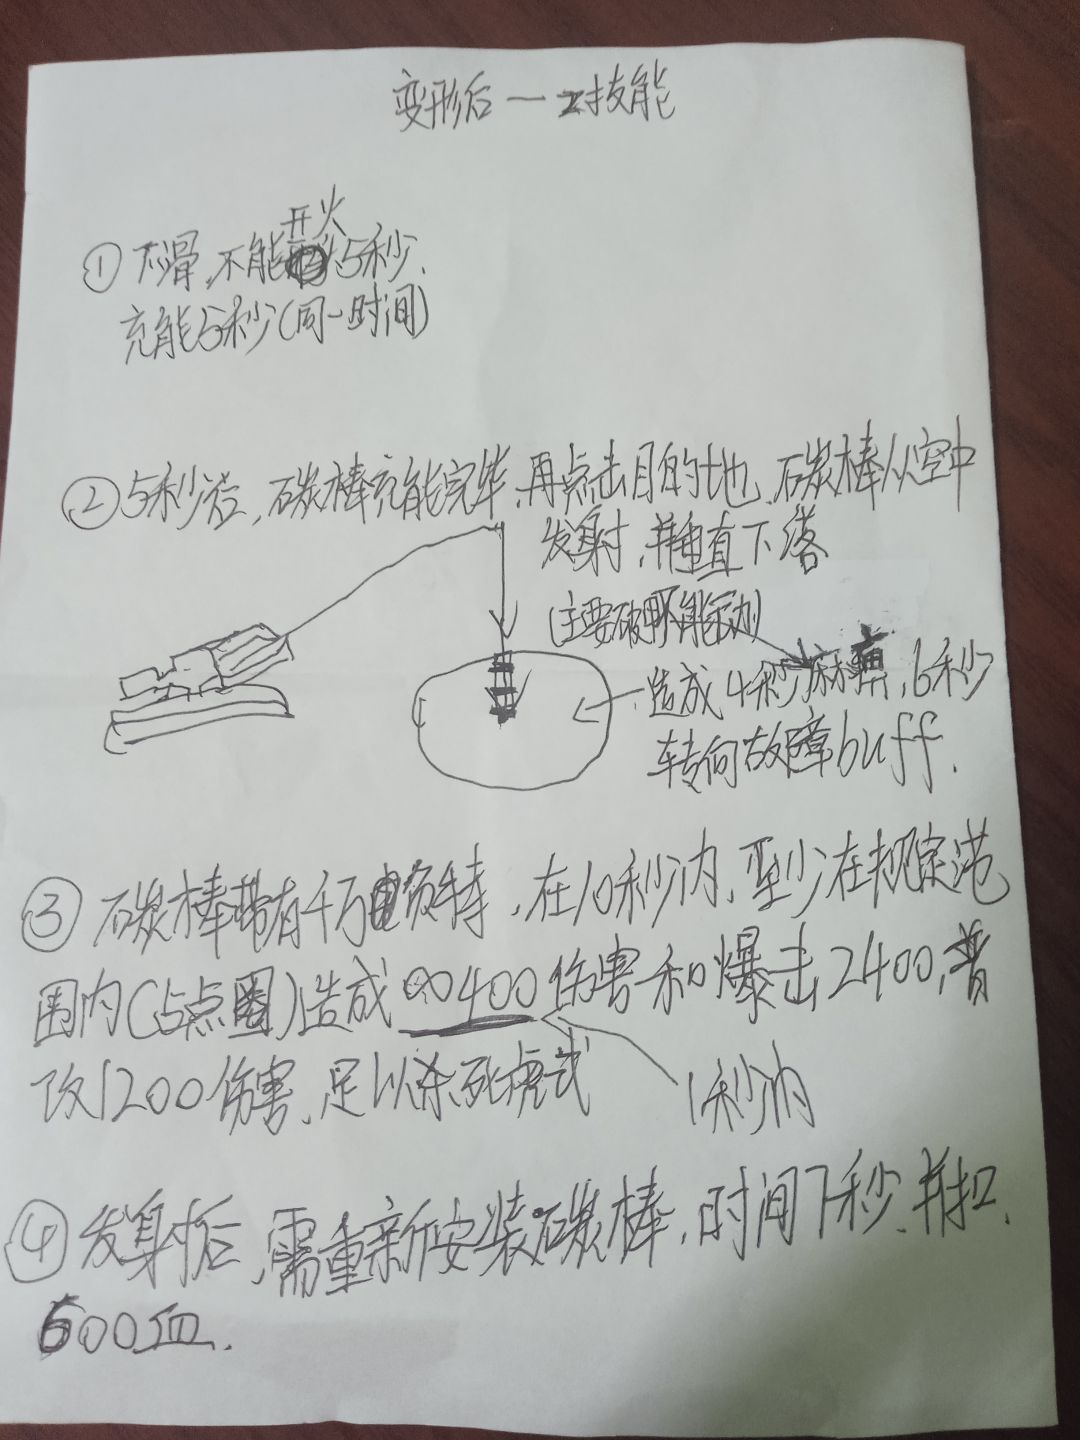 变形后一技能
开火
①下滑,不能5秒.
充能5秒(同一时间)
②5秒后,碳棒充能完毕,再点击目的地,碳棒从空中
发射,并垂直下落
(主要破坏不能动)
造成4秒麻痹,6秒
转向故障buff.
③碳棒带有千万伏特,在10秒内,至少在规定范
围内(5点圈)造成400伤害和爆击2400,普
攻1200伤害,足以杀死虎式
1秒内
④发射后,需重新安装碳棒,时间7秒,并扣
600血.